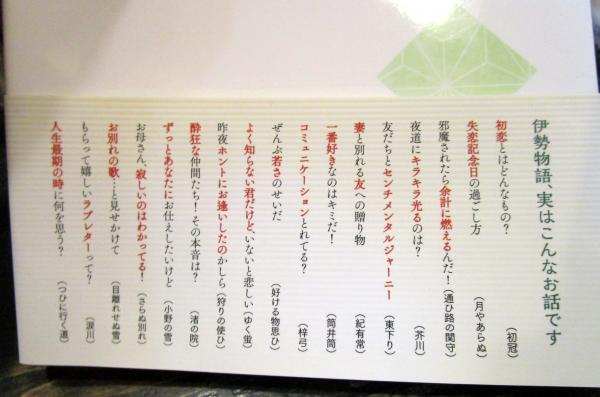 伊勢物語、実はこんなお話です
初恋とはどんなもの？（初冠）
失恋記念日の過ごし方（月やあらぬ）
邪魔されたら余計に燃えるんだ！（通ひ路の関守）
夜道にキラキラ光るのは？（芥川）
友だちとセンチメンタルジャーニー（東下り）
妻と別れる友への贈り物（紀有常）
一番好きなのはキミだ！（筒井筒）
コミュニケーションとれてる？（梓弓）
ぜんぶ若さのせいだ（好ける物思ひ）
よく知らない君だけど、いないと悲しい（ゆく蛍）
昨夜ホントにお逢いしたのかしら（狩りの使ひ）
酔狂な仲間たち！その本音は？（渚の院）
ずっとあなたにお仕えしたいけど（小野の雪）
お母さん、寂しいのはわかってる！（さらぬ別れ）
お別れの歌…と見せかけて（目離れせぬ雪）
もらって嬉しいラブレターって？（涙川）
人生最期の時に何を思う？（つひに行く道）